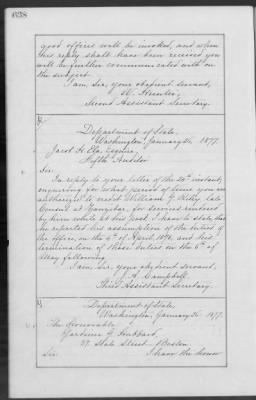 good offices will be invoked, and when
his reply shall have been received you
will be further communicated with on
the subject.
I am, Sir, your obedient servant,
W. Hunter,
Second Assistant Secretary.
Department of State,
Washington, January 26, 1877.
Jacob H. Ela, Esquire,
Fifth Auditor
Sir:
In reply to your letter of the 24th instant,
enquiring for what period of time you are
authorized to credit William G. Riley, late
Consul at Zanzibar, for services rendered
by him while at his post, I have to state, that
he reported his assumption of the duties of
the office, on the 4th of April, 1876, and his
termination of those duties on the 6th of
May following.
I am, Sir, your obedient servant,
J. A. Campbell,
Third Assistant Secretary.
Department of State,
Washington, January 26, 1877.
The Honorable
Gardiner G. Hubbard,
State Street Boston.
Sir: I have the honor